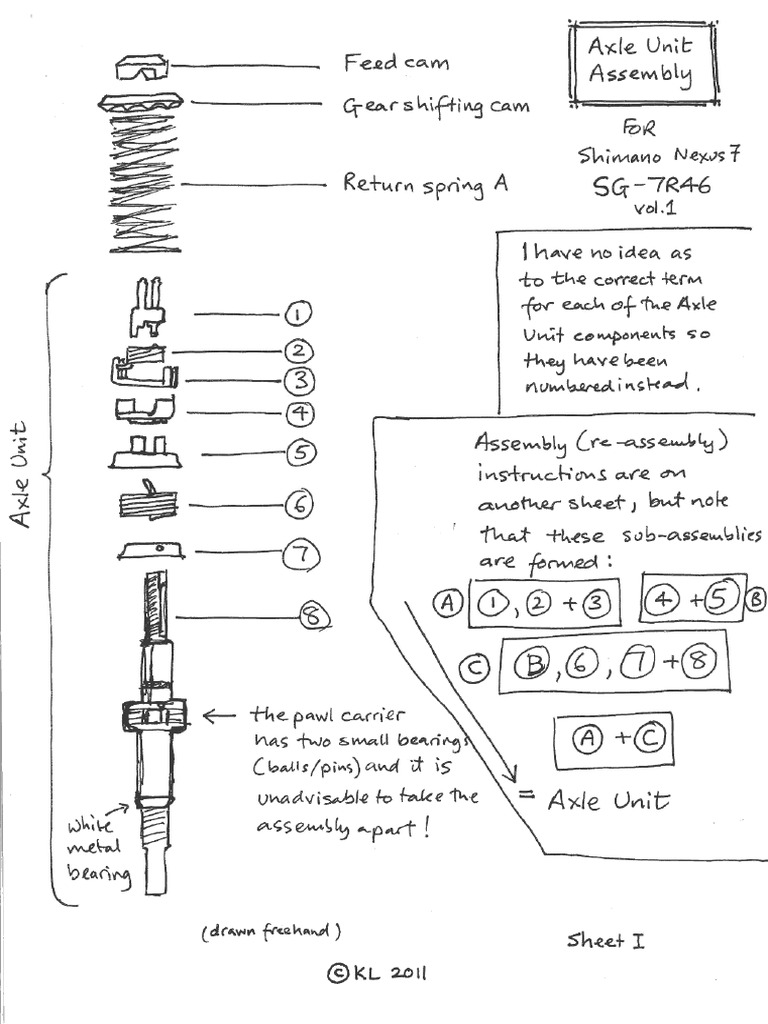 Axle Unit
Assembly
FOR
Shimano Nexus 7
SG-7R46
vol.1
Feed cam
Gear shifting cam
Return spring A
I have no idea as
to the correct term
for each of the Axle
Unit components so
they have been
numbered instead.
Axle Unit
1
2
3
4
5
6
7
8
Assembly (re-assembly)
instructions are on
another sheet, but note
that these sub-assemblies
are formed:
A 1, 2 + 3 4 + 5 B
C B, 6, 7 + 8
A + C
= Axle Unit
the pawl carrier
has two small bearings
(balls/pins) and it is
unadvisable to take the
assembly apart!
white
metal
bearing
(drawn freehand)
Sheet I
© KL 2011